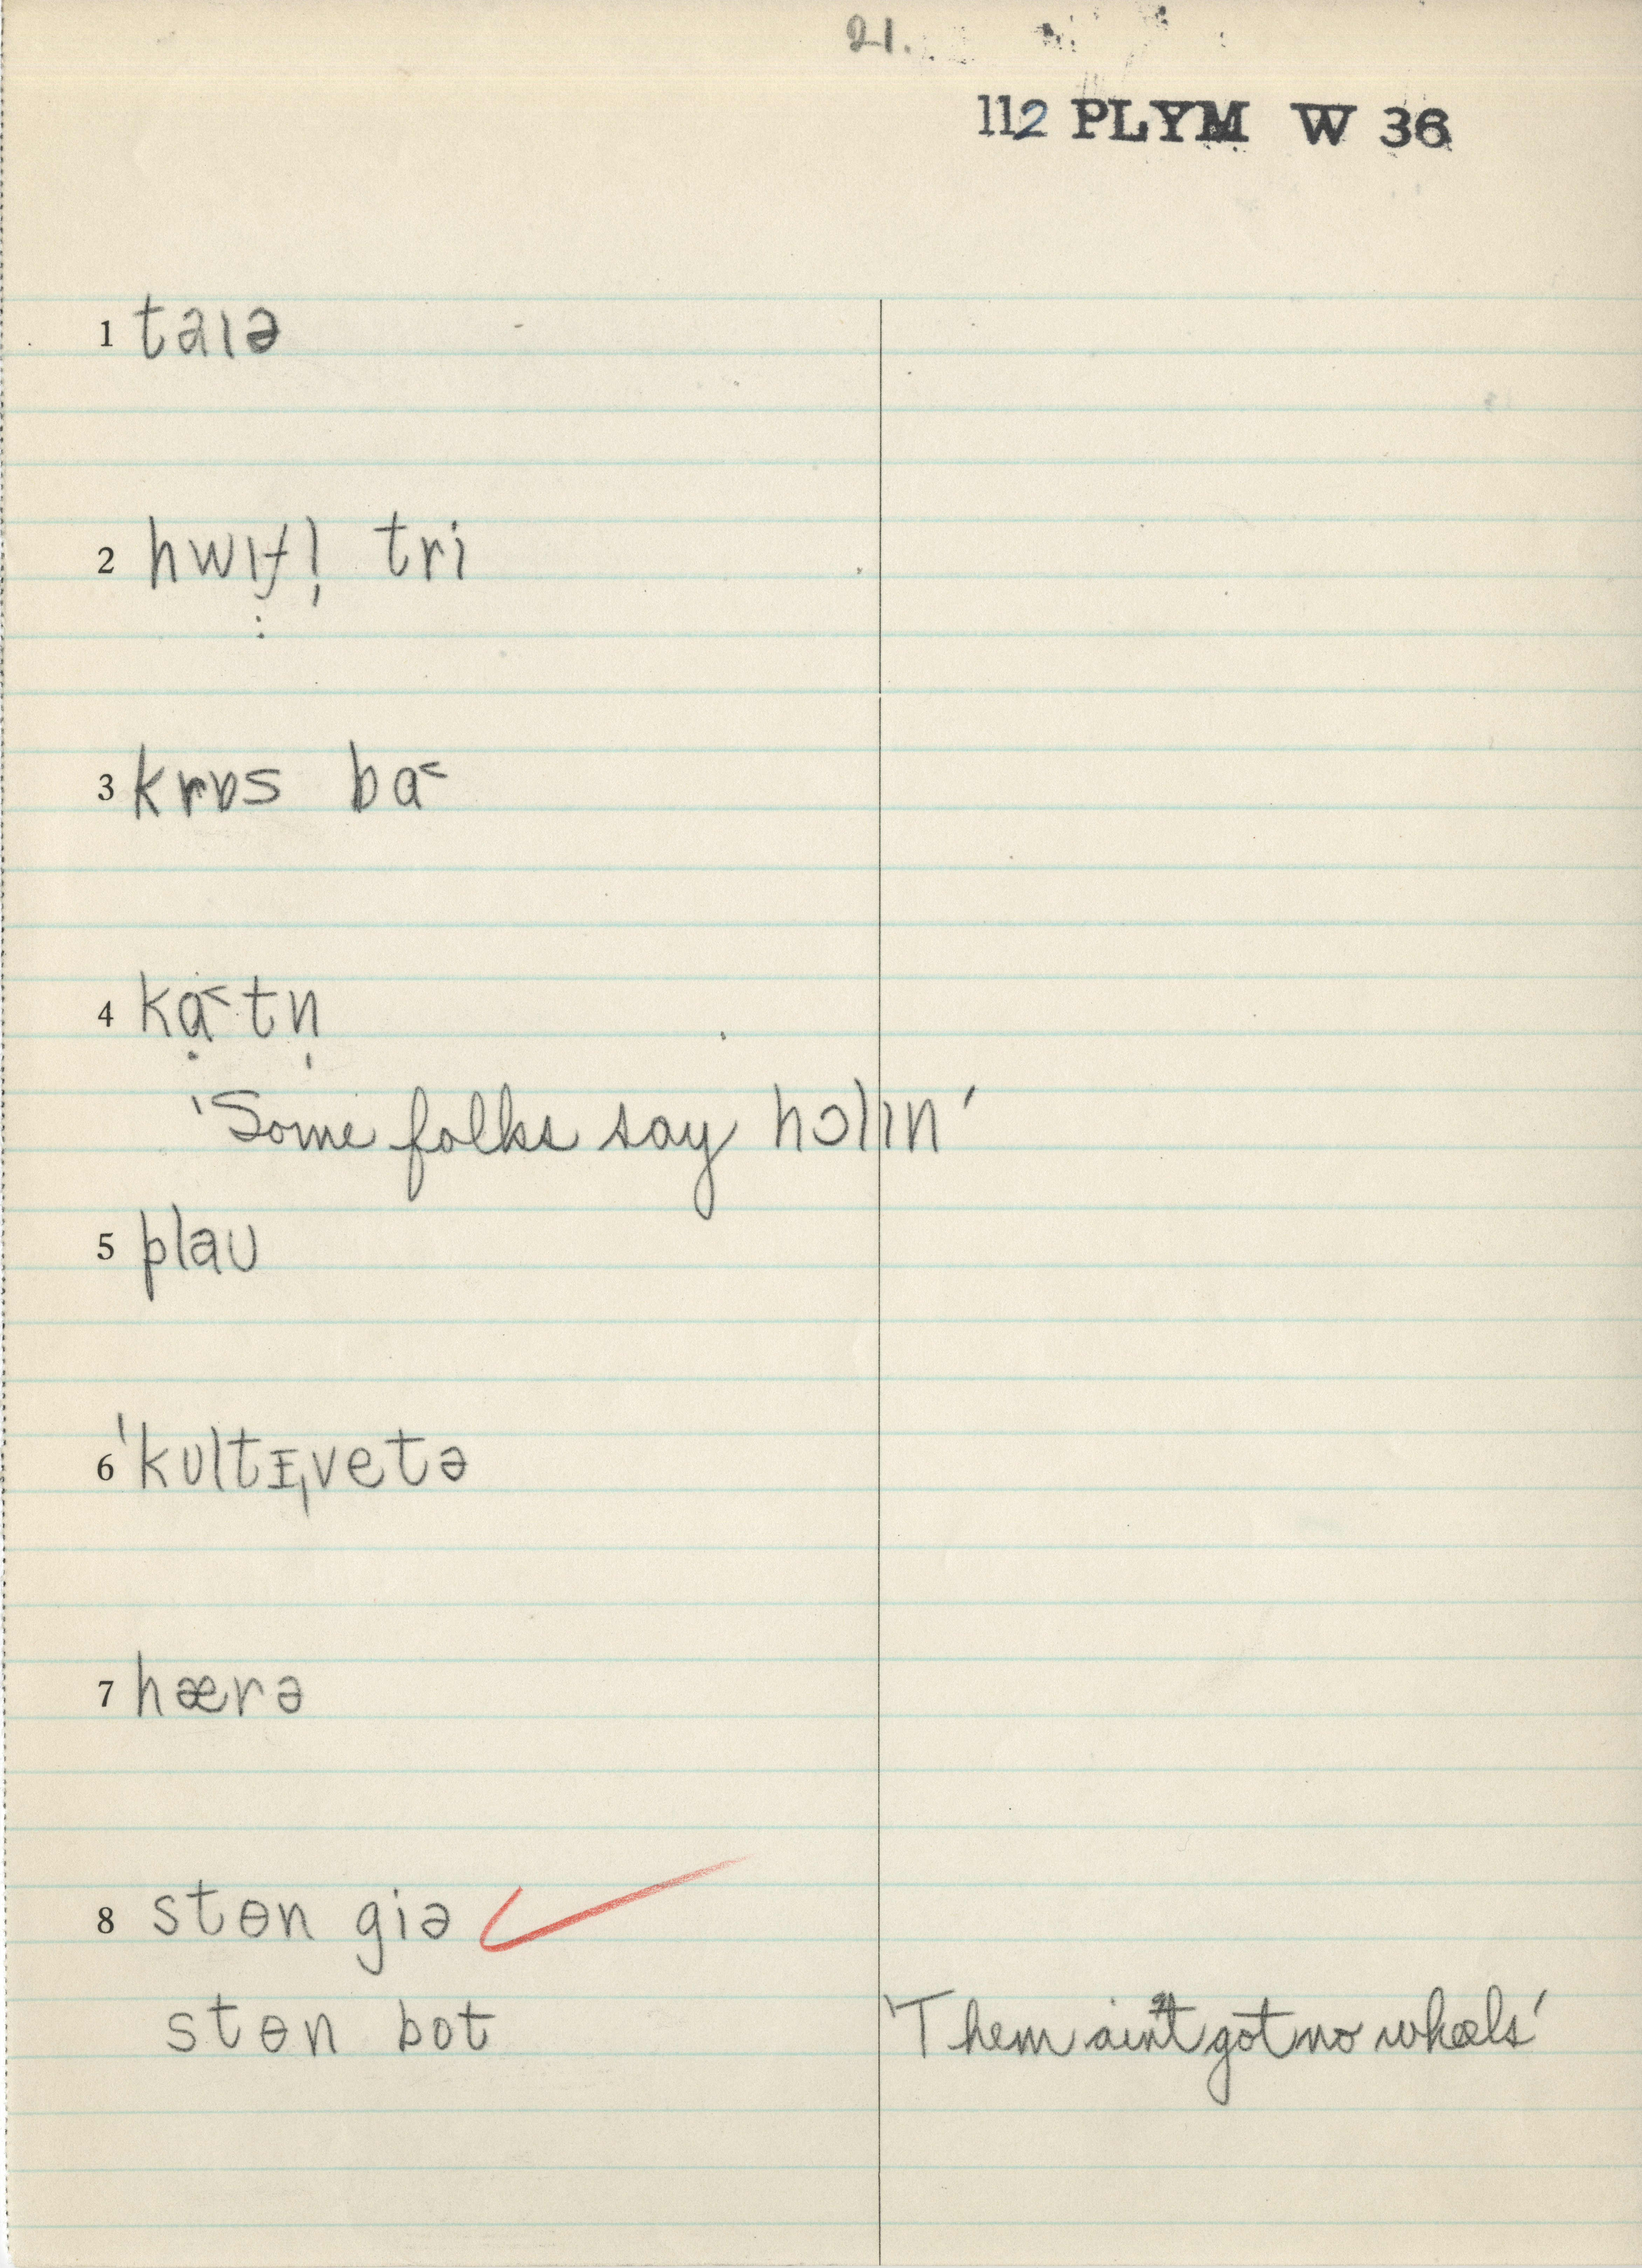 21.
112 PLYM W 36
1 taɪə
2 hwɪf̣l̩ tri
3 krɒs ba˂
4 kạ˂tn̩
'Some folks say hɔlɪn'
5 plaʊ
6 ˈkʊltɪˌvetə
7 hærə
8 stɵn giə ✓
stɵn bot 'Them ain't got no wheels'